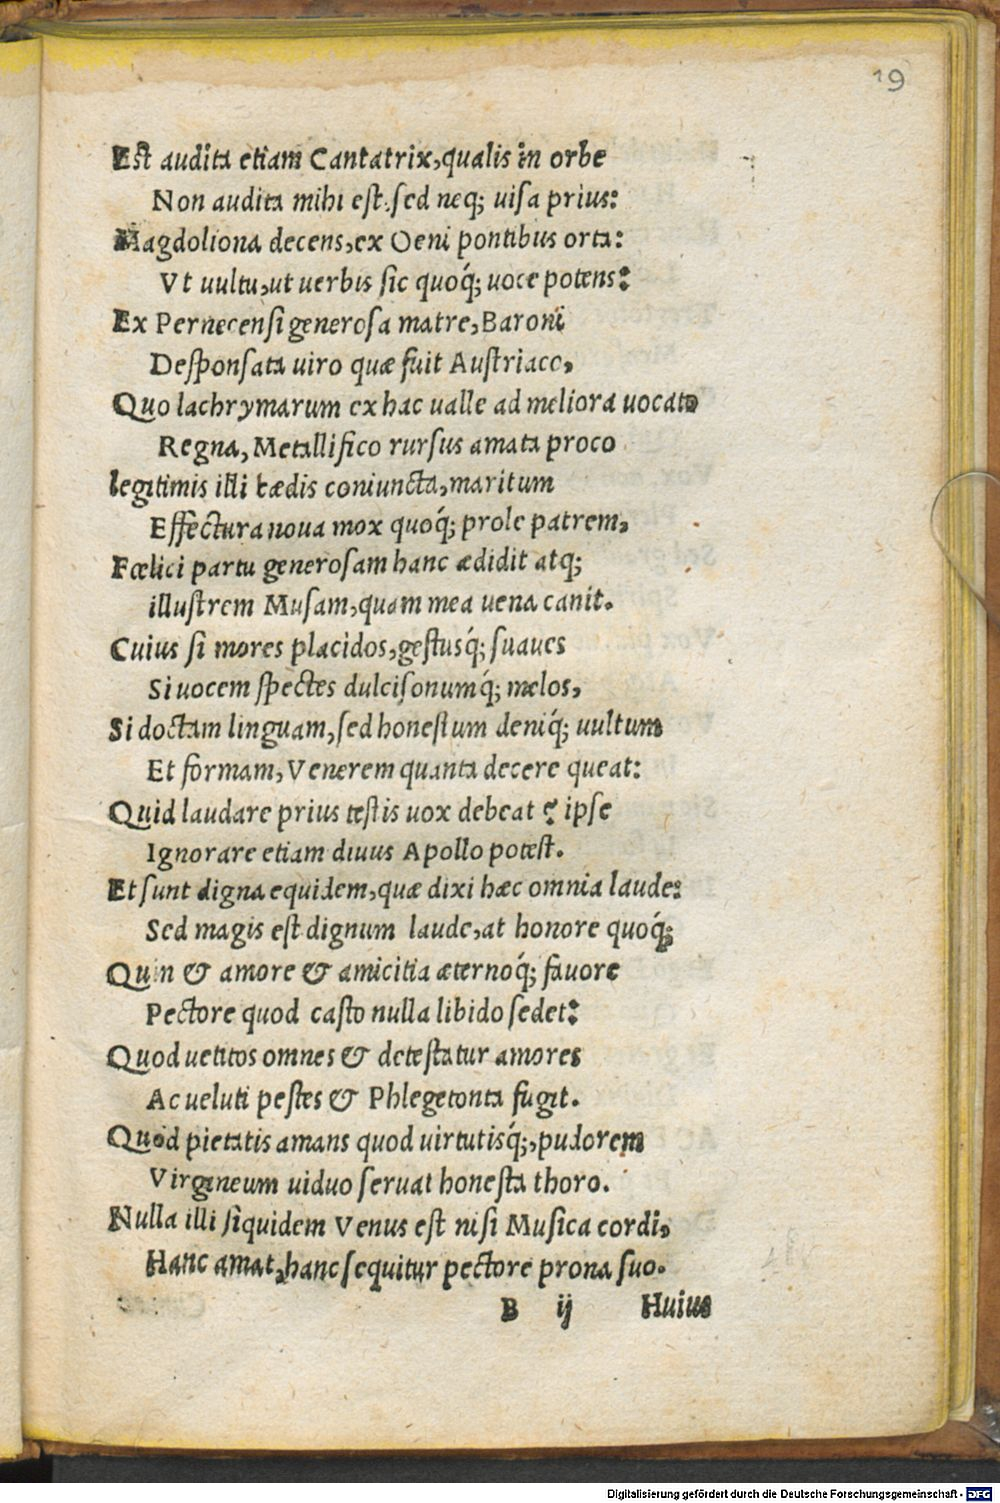 19
Est audita etiam Cantatrix, qualis in orbe
Non audita mihi est. sed neq; uisa prius:
Magdoliona decens, ex Oeni pontibus orta:
Vt uultu, ut uerbis sic quoq́; uoce potens:
Ex Pernecensi generosa matre, Baroni
Desponsata uiro quæ fuit Austriaco,
Quo lachrymarum ex hac ualle ad meliora uocato
Regna, Metallifico rursus amata proco
legitimis illi tædis coniuncta, maritum
Effectura noua mox quoq́; prole patrem,
Fœlici partu generosam hanc ædidit atq;
illustrem Musam, quam mea uena canit.
Cuius si mores placidos, gestusq́; suaues
Si uocem spectes dulcisonumq́; melos,
Si doctam linguam, sed honestum deniq́; uultum
Et formam, Venerem quanta decere queat:
Quid laudare prius testis uox debeat ? ipse
Ignorare etiam diuus Apollo potest.
Et sunt digna equidem, quæ dixi hæc omnia laude:
Sed magis est dignum laude, at honore quoq́;
Quin & amore & amicitia æternoq́; fauore
Pectore quod casto nulla libido sedet:
Quod uetitos omnes & detestatur amores
Ac ueluti pestes & Phlegetonta fugit.
Quod pietatis amans quod uirtutisq́;, pudorem
Virgineum uiduo seruat honesta thoro.
Nulla illi siquidem Venus est nisi Musica cordi,
Hanc amat, hanc sequitur pectore prona suo.
B ij Huius
Digitalisierung gefördert durch die Deutsche Forschungsgemeinschaft - DFG